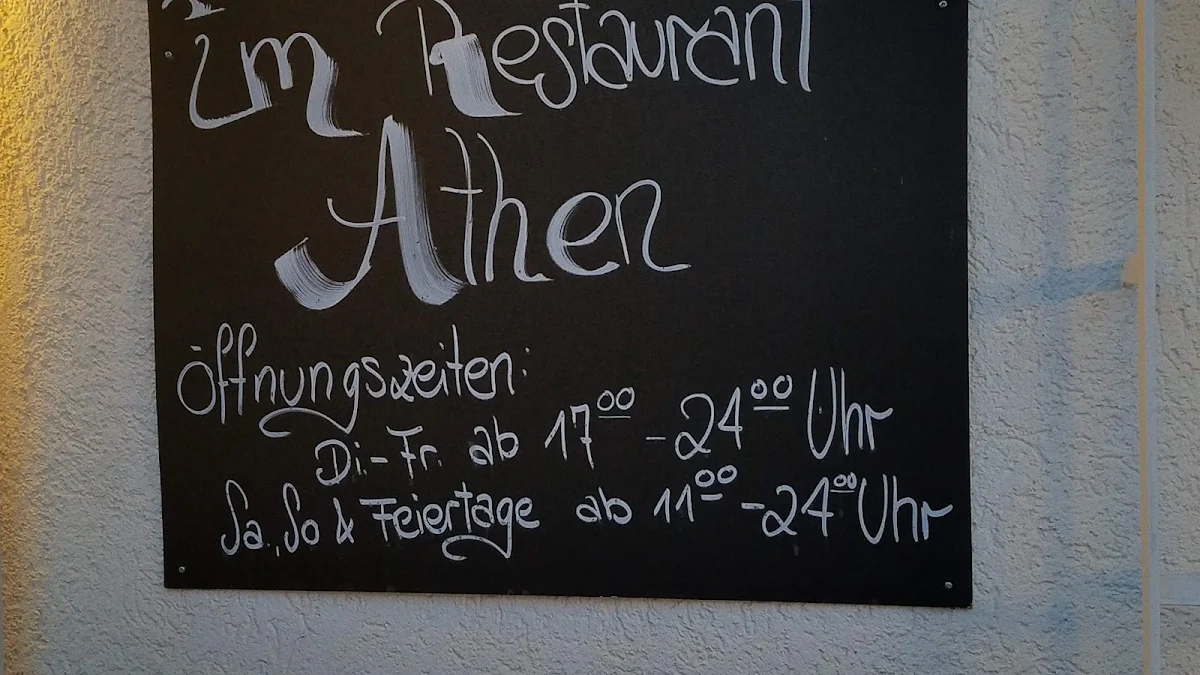 im Restaurant
Athen
Öffnungszeiten:
Di.-Fr. ab 17⁰⁰ - 24⁰⁰ Uhr
Sa., So & Feiertage ab 11⁰⁰ - 24⁰⁰ Uhr